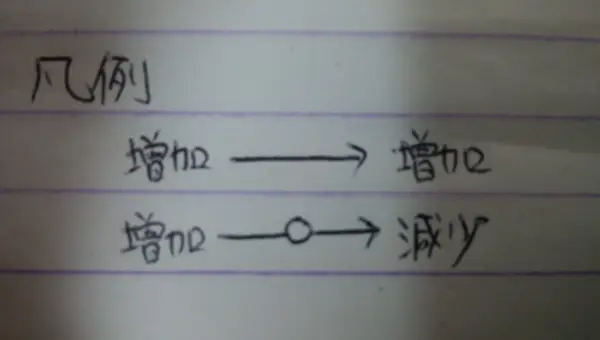 凡例
増加 → 増加
増加 —○→ 減少